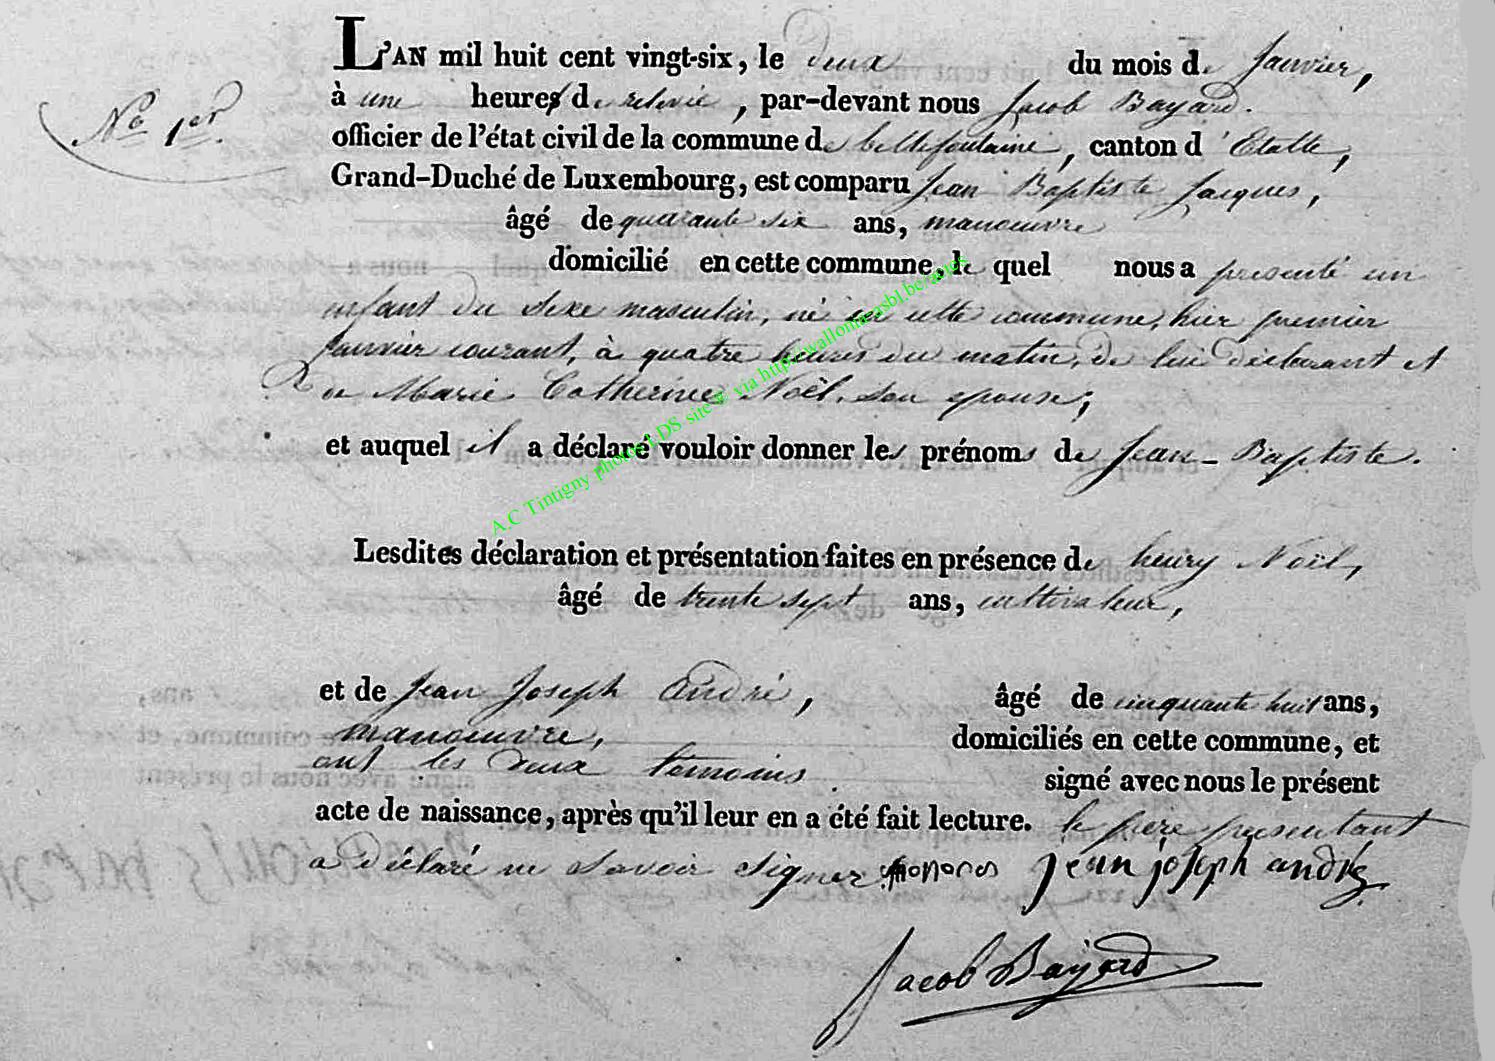 L'AN mil huit cent vingt-six, le deux du mois de Janvier,
à une heure de relevée, par-devant nous Jacob Bayard.
N° 1er.
officier de l'état civil de la commune de bellefontaine, canton d'Etalle,
Grand-Duché de Luxembourg, est comparu Jean Baptiste Jacques,
âgé de quarante six ans, manoeuvre
domicilié en cette commune, le quel nous a presenté un
enfant du sexe masculin, né en cette commune, hier premier
Janvier courant, à quatre heures du matin, de lui déclarant et
de Marie Catherine Noël, son epouse;
et auquel il a déclaré vouloir donner les prénoms de Jean-Baptiste.
A.C Tintigny photos LDS site via http://wallonia-asbl.be
Lesdites déclaration et présentation faites en présence de henry Noël,
âgé de trente sept ans, cultivateur,
et de Jean Joseph André, âgé de cinquante huit ans,
manoeuvre, domiciliés en cette commune, et
ont les deux témoins signé avec nous le présent
acte de naissance, après qu'il leur en a été fait lecture. le père presentant
a déclaré ne savoir signer. jean joseph andré
Jacob Bayard